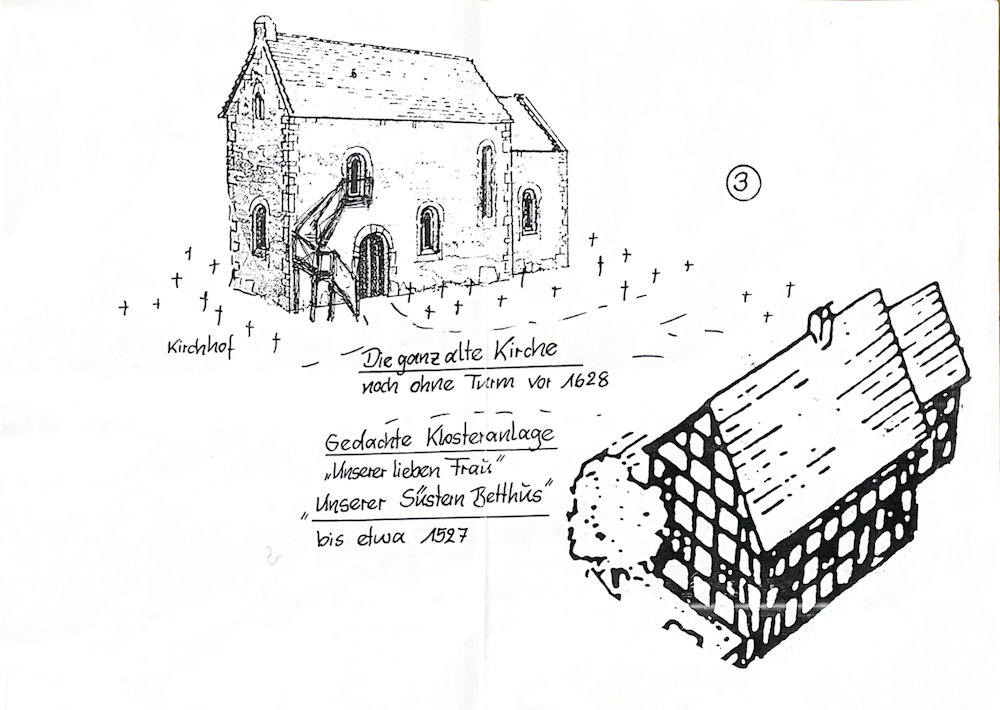 3
Kirchhof
Die ganz alte Kirche
noch ohne Turm vor 1628
Gedachte Klosteranlage
„Unserer lieben Frau"
„Unserer Süstern Betthús"
bis etwa 1527